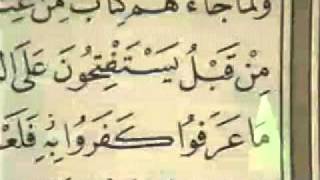 وَلَمَّا جَاءَهُمْ كِتَابٌ مِنْ
مِنْ قَبْلُ يَسْتَفْتِحُونَ عَلَى
مَا عَرَفُوا كَفَرُوا بِهِ فَلَعْ